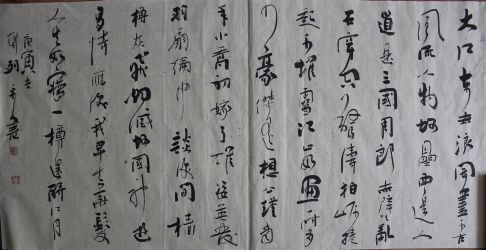 大江东去浪淘盡千古
風流人物故壘西邊人
道是三國周郎赤壁亂
石穿空驚濤拍岸捲
起千堆雪江山如畫一時多
少豪傑遥想公瑾當
年小喬初嫁了雄姿英發
羽扇綸巾談笑間檣
櫓灰飛烟滅故國神遊
多情應笑我早生華髮
人生如夢一樽還酹江月
庚寅春